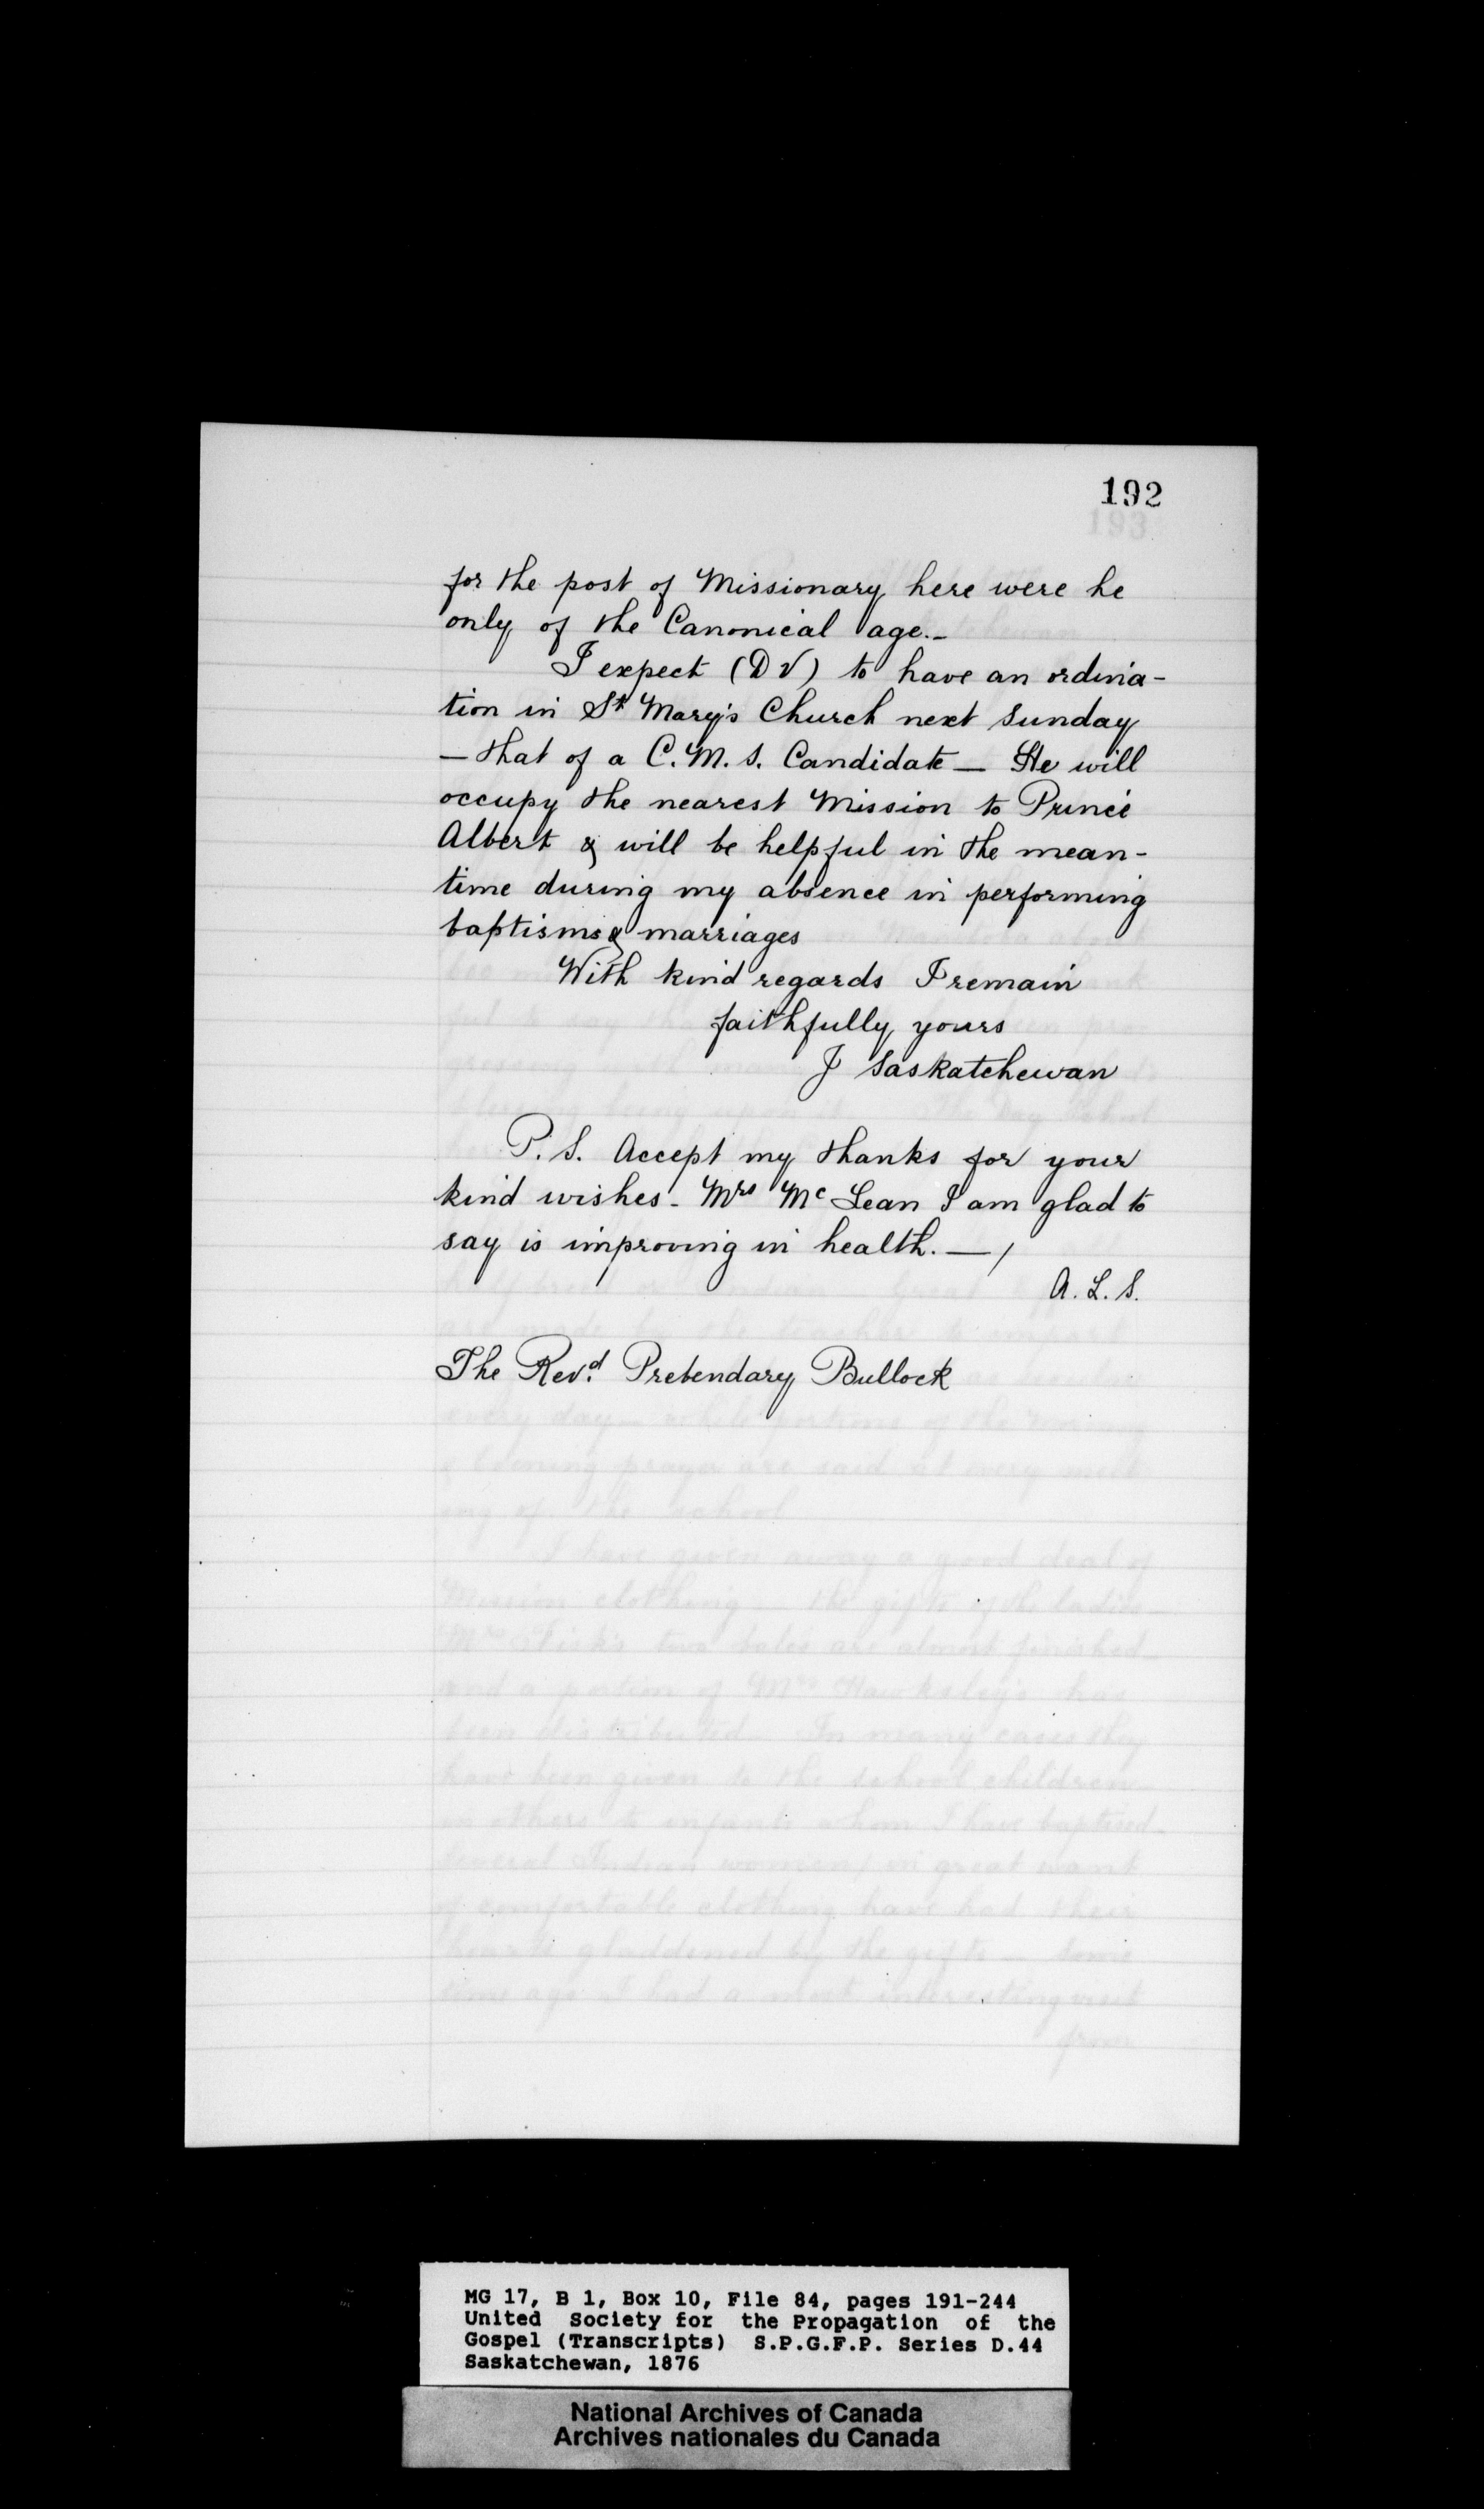 192
for the post of Missionary here were he
only of the Canonical age.-
I expect (DV) to have an ordina-
tion in St Mary's Church next Sunday
- that of a C.M.S. Candidate - He will
occupy the nearest Mission to Prince
Albert & will be helpful in the mean-
time during my absence in performing
baptisms & marriages
With kind regards I remain
faithfully yours
J Saskatchewan
P.S. Accept my thanks for your
kind wishes - Mrs McLean I am glad to
say is improving in health. - /
A.L.S.
The Revd. Prebendary Bullock
MG 17, B 1, Box 10, File 84, pages 191-244
United Society for the Propagation of the
Gospel (Transcripts) S.P.G.F.P. Series D.44
Saskatchewan, 1876
National Archives of Canada
Archives nationales du Canada